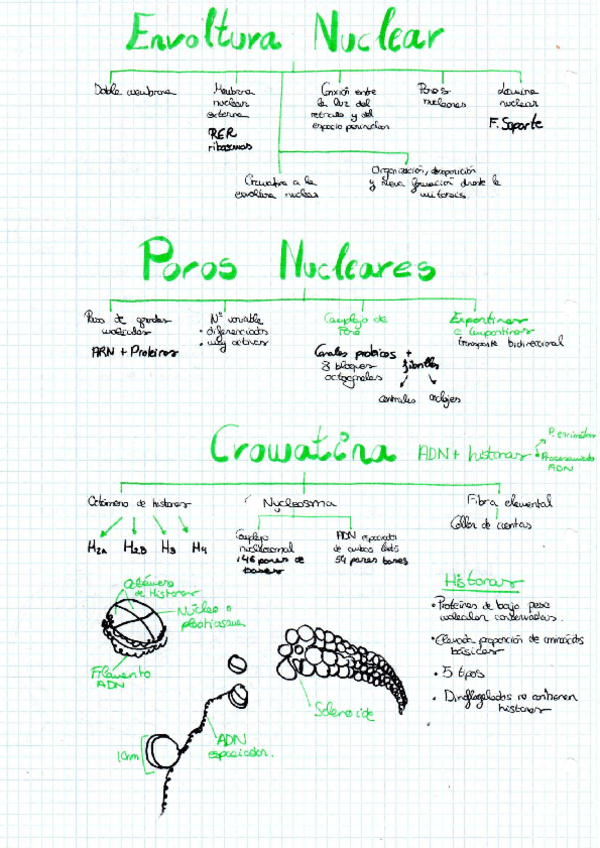 Envoltura Nuclear
Doble membrana
Membrana
nuclear
externa
RER
ribosomas
Conexión entre
la luz del
retículo y del
espacio perinuclear
Poros
nucleares
Lámina
nuclear
F. Soporte
Cromatina a la
envoltura nuclear
Organización, desaparición
y nueva formación durante la
mitosis
Poros Nucleares
Paso de grandes
moléculas
ARN + Proteínas
Nº variable
• diferenciados
• muy activas
Complejo de
Poro
Canales proteicos +
8 bloques
octogonales
fibrillas
centrales
anclajes
Exportinas
e importinas
transporte bidireccional
Cromatina
ADN + histonas
Procesamiento
ADN
Octámero de histonas
H2A H2B H3 H4
Nucleosoma
Complejo
nucleosomal
146 pares de
bases
ADN espaciador
54 pares bases
Fibra elemental
Collar de cuentas
octámero
de Histonas
Núcleo o
Filamento
ADN
10nm
ADN
espaciador.
Solenoide
Histonas
• Proteínas de bajo peso
molecular conservadas.
• Elevada proporción de aminoácidos
básicos
• 5 tipos
• Dinoflagelados no contienen
histonas